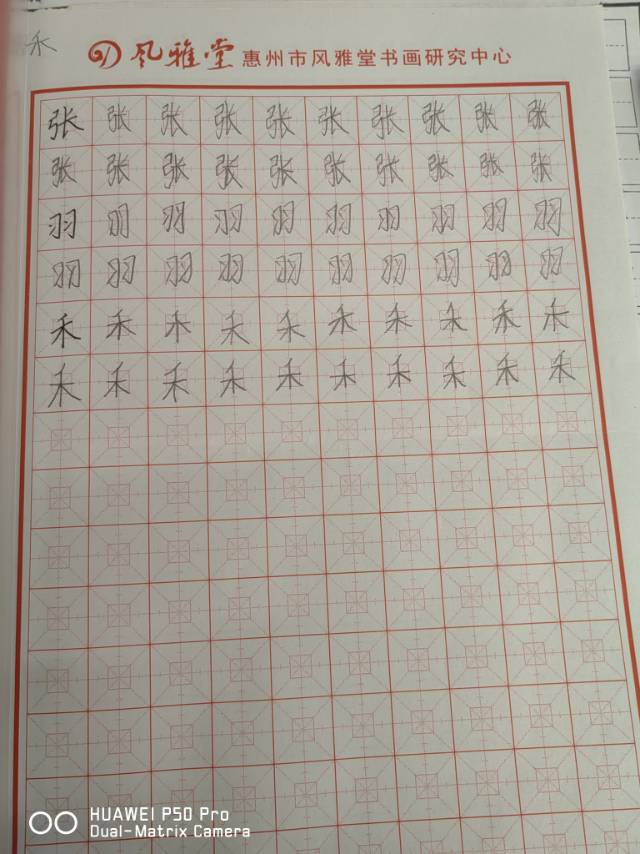 禾
风雅堂 惠州市风雅堂书画研究中心
张 张 张 张 张 张 张 张 张 张
张 张 张 张 张 张 张 张 张 张
羽 羽 羽 羽 羽 羽 羽 羽 羽 羽
羽 羽 羽 羽 羽 羽 羽 羽 羽 羽
禾 禾 禾 禾 禾 禾 禾 禾 禾 禾
禾 禾 禾 禾 禾 禾 禾 禾 禾 禾
HUAWEI P50 Pro
Dual-Matrix Camera